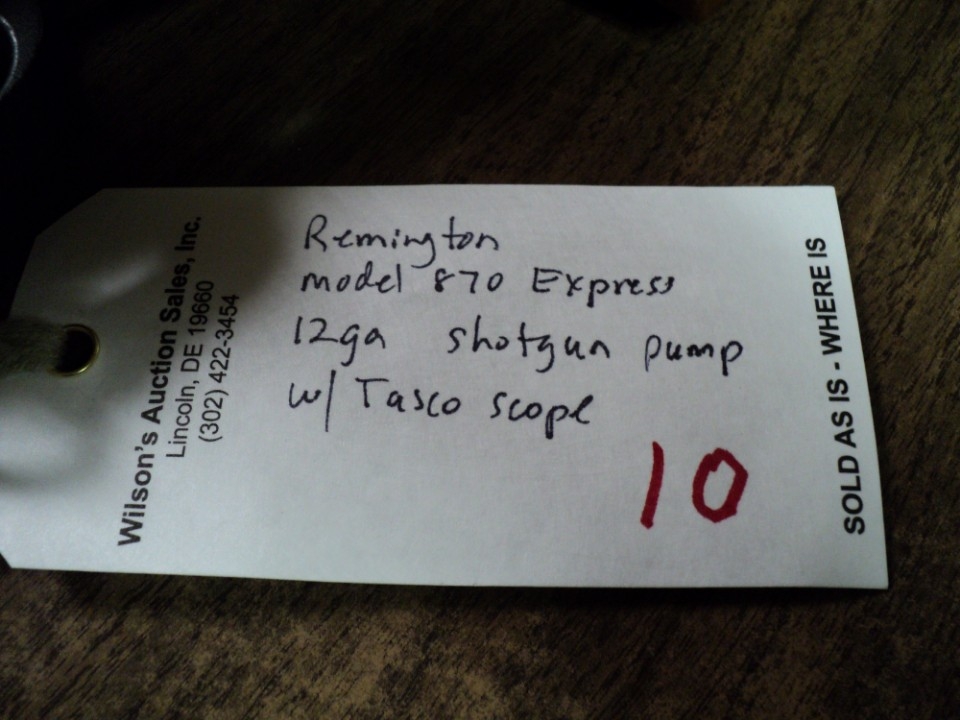 Wilson's Auction Sales, Inc.
Lincoln, DE 19660
(302) 422-3454
Remington
model 870 Express
12ga shotgun pump
w/ Tasco scope
10
SOLD AS IS - WHERE IS